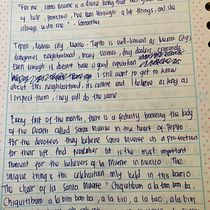 "For me, Santa Muerte is a divine being that has given me a lot
of help. However, I've been through a lot things, and she
always with me" - Samantha
Tepito, Mexico city. Tepito is well-known as Mexico City's
dangerous neighborhood, many thieves, drug dealers, criminals
Even though it doesn't have a good reputation
I still want to get to know
about this neighborhood, its culture and I believe as long as
I respect them, they will do the same
Every first of the month, there is a festivity honoring the body
of the Death called Santa Muerte in the heart of Tepito
For the devotees they believe Santa Muerte is a protection
for their life and it is the most important
moment for the believers of la Muerte in Mexico. The
unique thing is the celebration only held in this barrio
The choir of la Santa Muerte "Chiquitibum a la bim bom ba,
Chiquitibum a la bim bom ba, a la bio, a la bao, a la bim